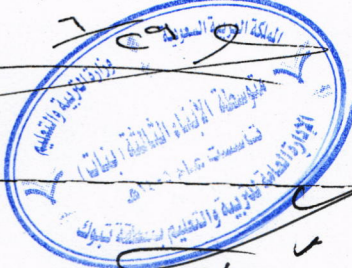 المملكة العربية السعودية
وزارة التربية والتعليم
متوسطة الأبناء الثالثة (بنات)
تأسست عام
الإدارة العامة للتربية والتعليم بمنطقة تبوك